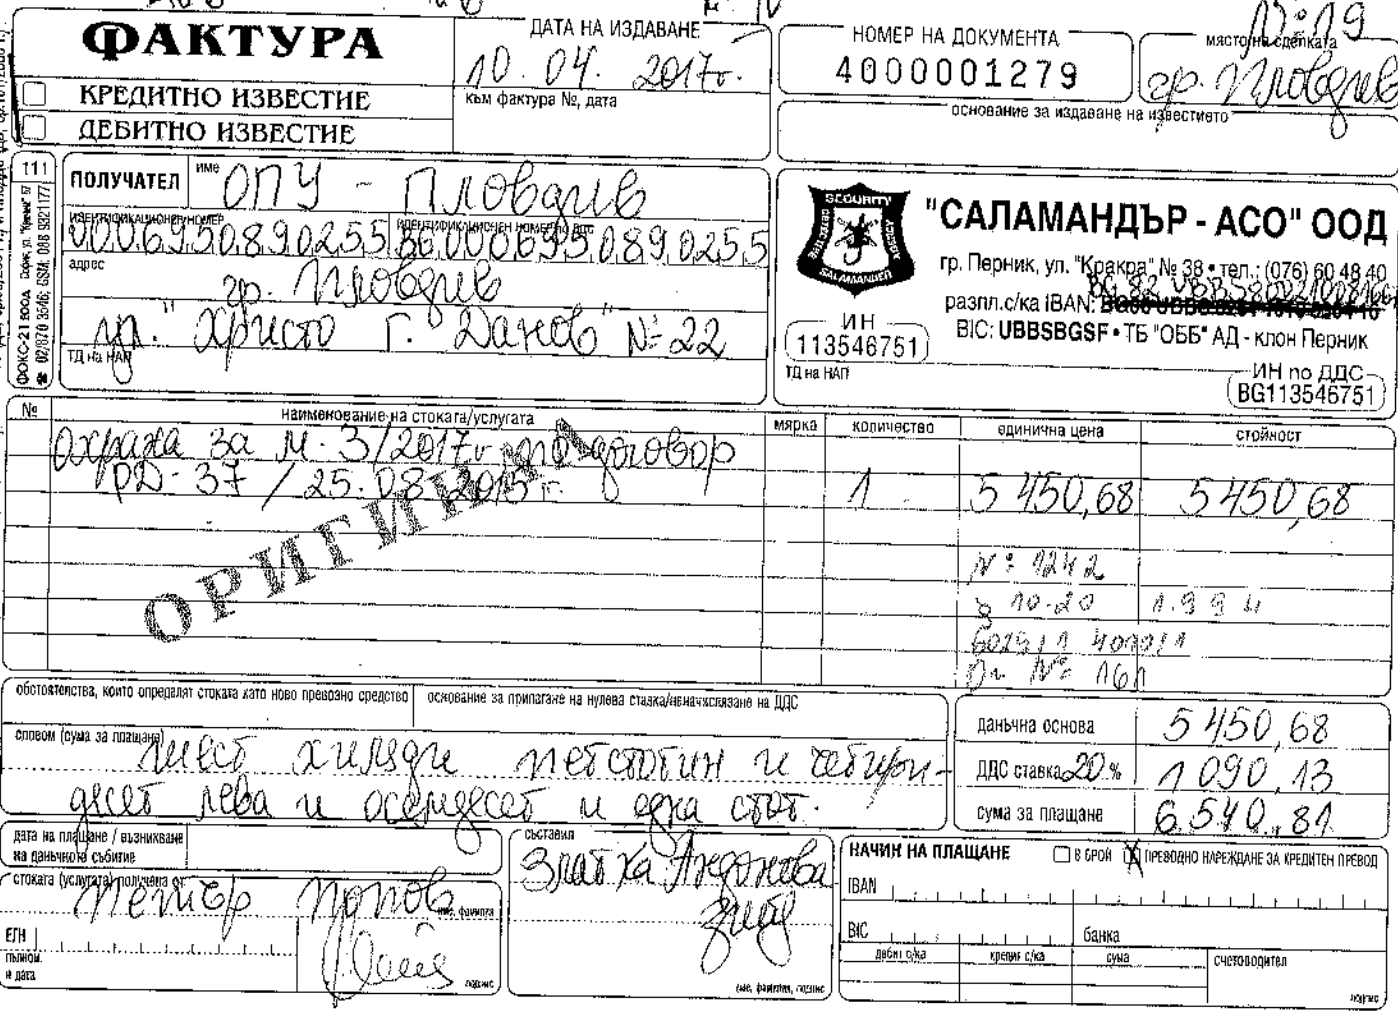 ФАКТУРА
КРЕДИТНО ИЗВЕСТИЕ
ДЕБИТНО ИЗВЕСТИЕ
ДАТА НА ИЗДАВАНЕ
10.04.2017г.
към фактура №, дата
НОМЕР НА ДОКУМЕНТА
4000001279
място на сделката
гр. Пловдив
основание за издаване на известието
111
ПОЛУЧАТЕЛ
име
ОПУ - Пловдив
идентификационен номер
0006950890255
идентификационен номер по ДДС
BG0006950890255
адрес
гр. Пловдив
ул. "Христо Г. Данов" № 22
ТД на НАП
SECURITY
SALAMANDER
"САЛАМАНДЪР - АСО" ООД
гр. Перник, ул. "Кракра" № 38 • тел.: (076) 60 48 40
разпл.с/ка IBAN:
BIC: UBBSBGSF • ТБ "ОББ" АД - клон Перник
ИН
113546751
ТД на НАП
ИН по ДДС
BG113546751
№ наименование на стоката/услугата мярка количество единична цена стойност
охрана за м. 3/2017г. по договор
РД-37 / 25.08.2015г. 1 5 450,68 5 450,68
ОРИГИНАЛ
№ 1242
10-20
обстоятелства, които определят стоката като ново превозно средство
основание за прилагане на нулева ставка/неначисляване на ДДС
словом (сума за плащане)
шест хиляди петстотин и четири-
десет лева и осемдесет и една стот.
данъчна основа 5 450,68
ДДС ставка 20 % 1 090,13
сума за плащане 6.540,81
дата на плащане / възникване
на данъчното събитие
стоката (услугата) получена от:
Петър Попов
име, фамилия
ЕГН
пълном.
и дата
подпис
съставил
Златка Андонова
име, фамилия, подпис
НАЧИН НА ПЛАЩАНЕ
В БРОЙ
X ПРЕВОДНО НАРЕЖДАНЕ ЗА КРЕДИТЕН ПРЕВОД
IBAN
BIC
банка
дебит с/ка кредит с/ка сума счетоводител
подпис